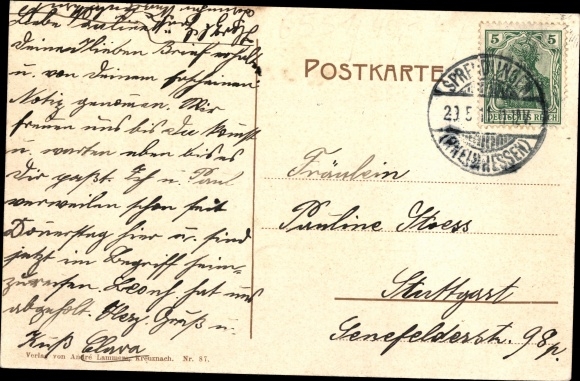 Liebe Pauline!
Deinen lieben Brief erhalten
u. von Deinem
Notiz genommen. Wir
freuen uns bis Du kommst
u. warten eben bis es
Dir paßt. Ich u. Paul
verweilen schon seit
Donnerstag hier u. sind
jetzt im Begriff heim-
zureisen. hat uns
abgeholt. Herz. Gruß u.
Kuß Clara
Verlag von André Lammens, Kreuznach. Nr. 87.
POSTKARTE
5 5
DEUTSCHES REICH
SPRENDLINGEN
(RHEINHESSEN)
Fräulein
Pauline Stoess
Stuttgart
Senefelderstr. 98p.